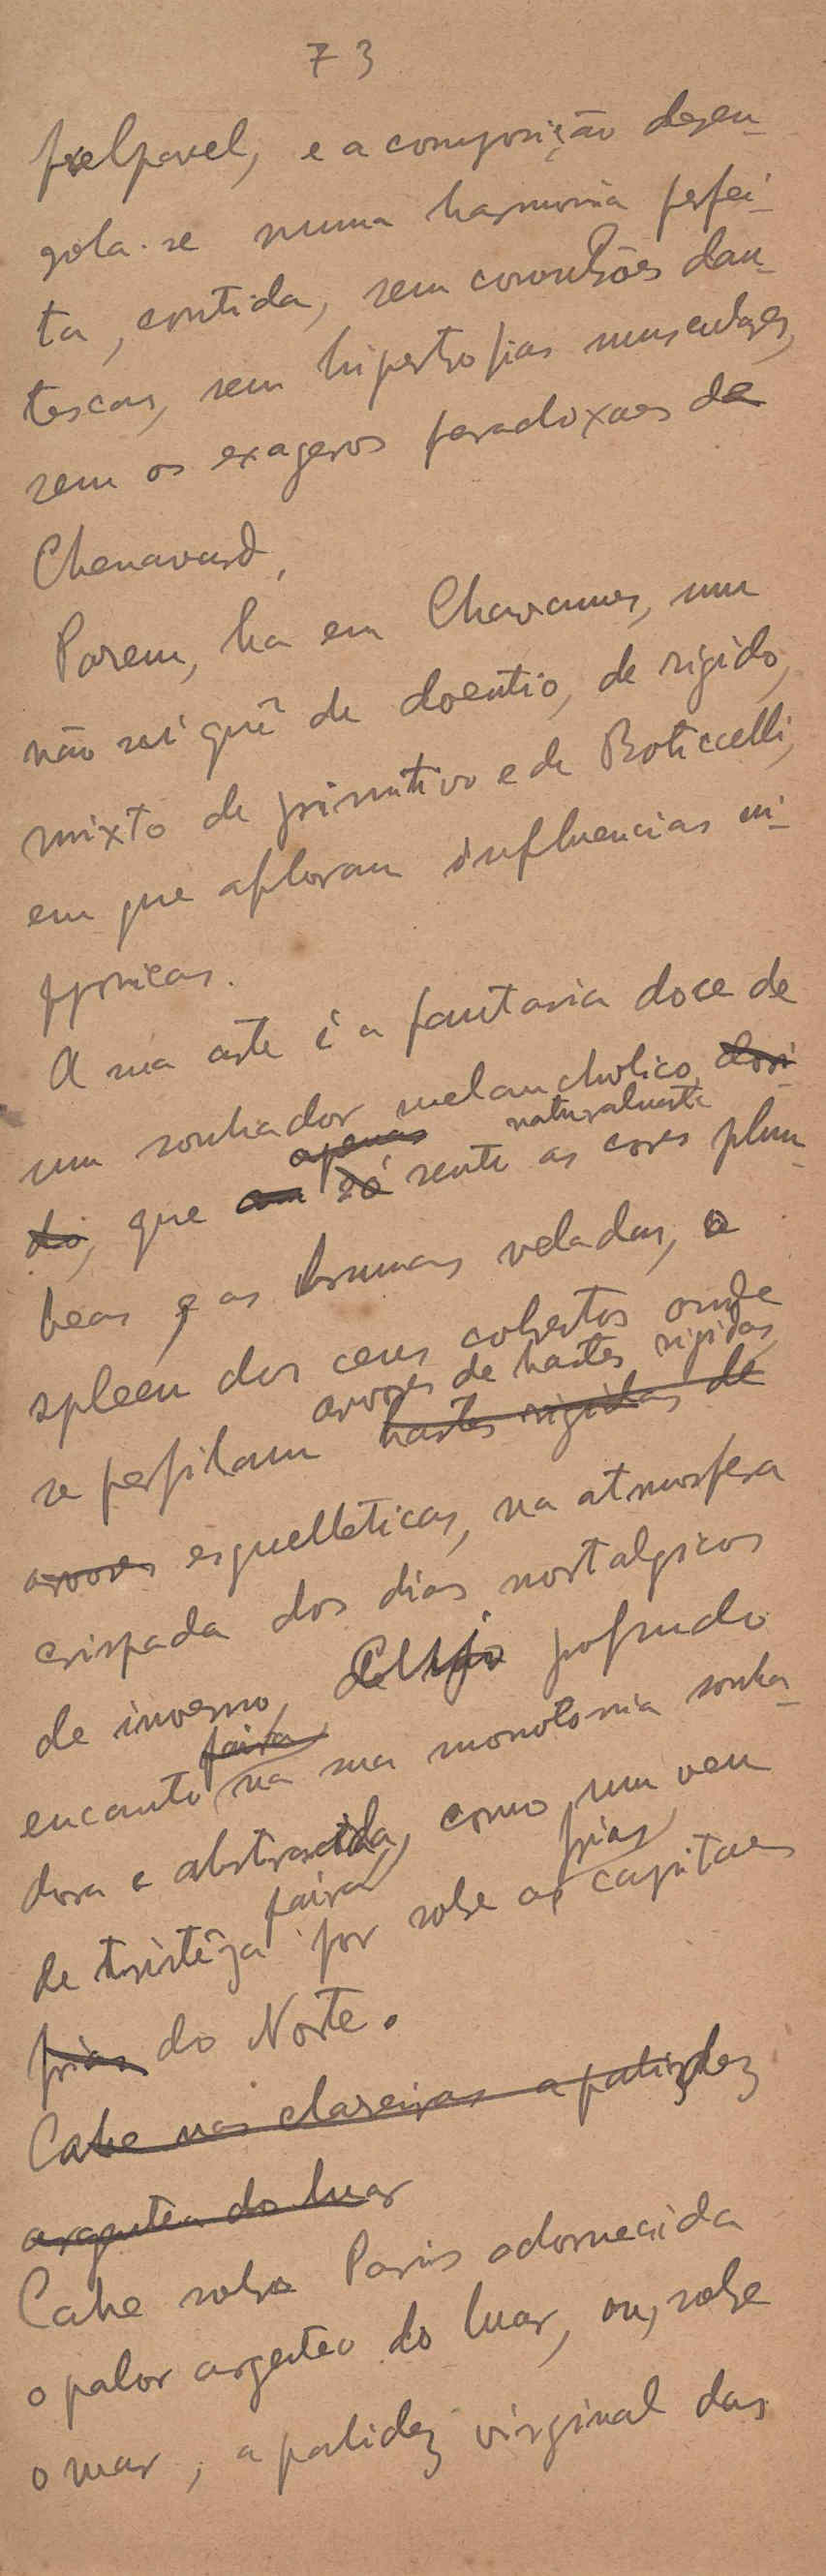 73
palpavel, e a composição desen-
gola-se numa harmonia perfei-
ta, contida, sem convulsões dan-
tescas, sem hipertrofias musculares,
sem os exageros paradoxaes de
Chenavard,
Porem, ha em Chavannes, um
não sei quê de doentio, de rigido,
mixto de primitivo e de Boticcelli,
em que afloram influencias ni-
pponicas.
A sua arte é a fantasia doce de
um sonhador melancholico, dori-
do, que só sente as cores plum-
apenas naturalmente
beas e as brumas veladas, o
spleen dos ceus cobertos onde
arvores de hastes rigidas,
se perfilam hastes rigidas de
arvores esquelleticas, na atmosfera
crispada dos dias nostalgicos
de inverno, cujo profundo
encanto paira na sua monotonia sonha-
dora e abstracta, como um veu
paira frias
de tristêza por sobre as capitaes
frias do Norte.
Cahe nas clareiras a palidez
argentea do luar
Cahe sobre Paris adormecida
o palor argenteo do luar, ou, sobe
o mar, a palidez virginal das